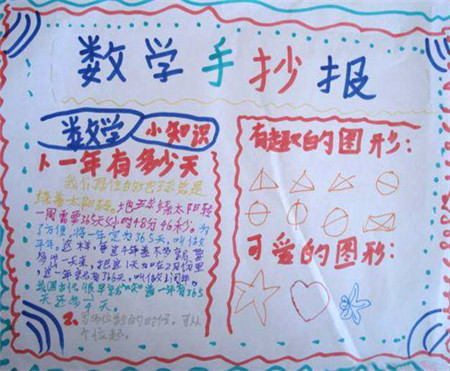 数学手抄报
数学 小知识
1、一年有多少天
我们居住的地球总是
绕着太阳转。地球绕太阳转
一周需要365天5小时48分46秒。为
了方便,将一年定为365天,叫做
平年,这样,每四年差不多
一天来,把这1天加在2月里,
这一年就有366天,叫做闰年。
365
天
2、
的时候,可从
个位起。
有趣的图形:
可爱的图形: